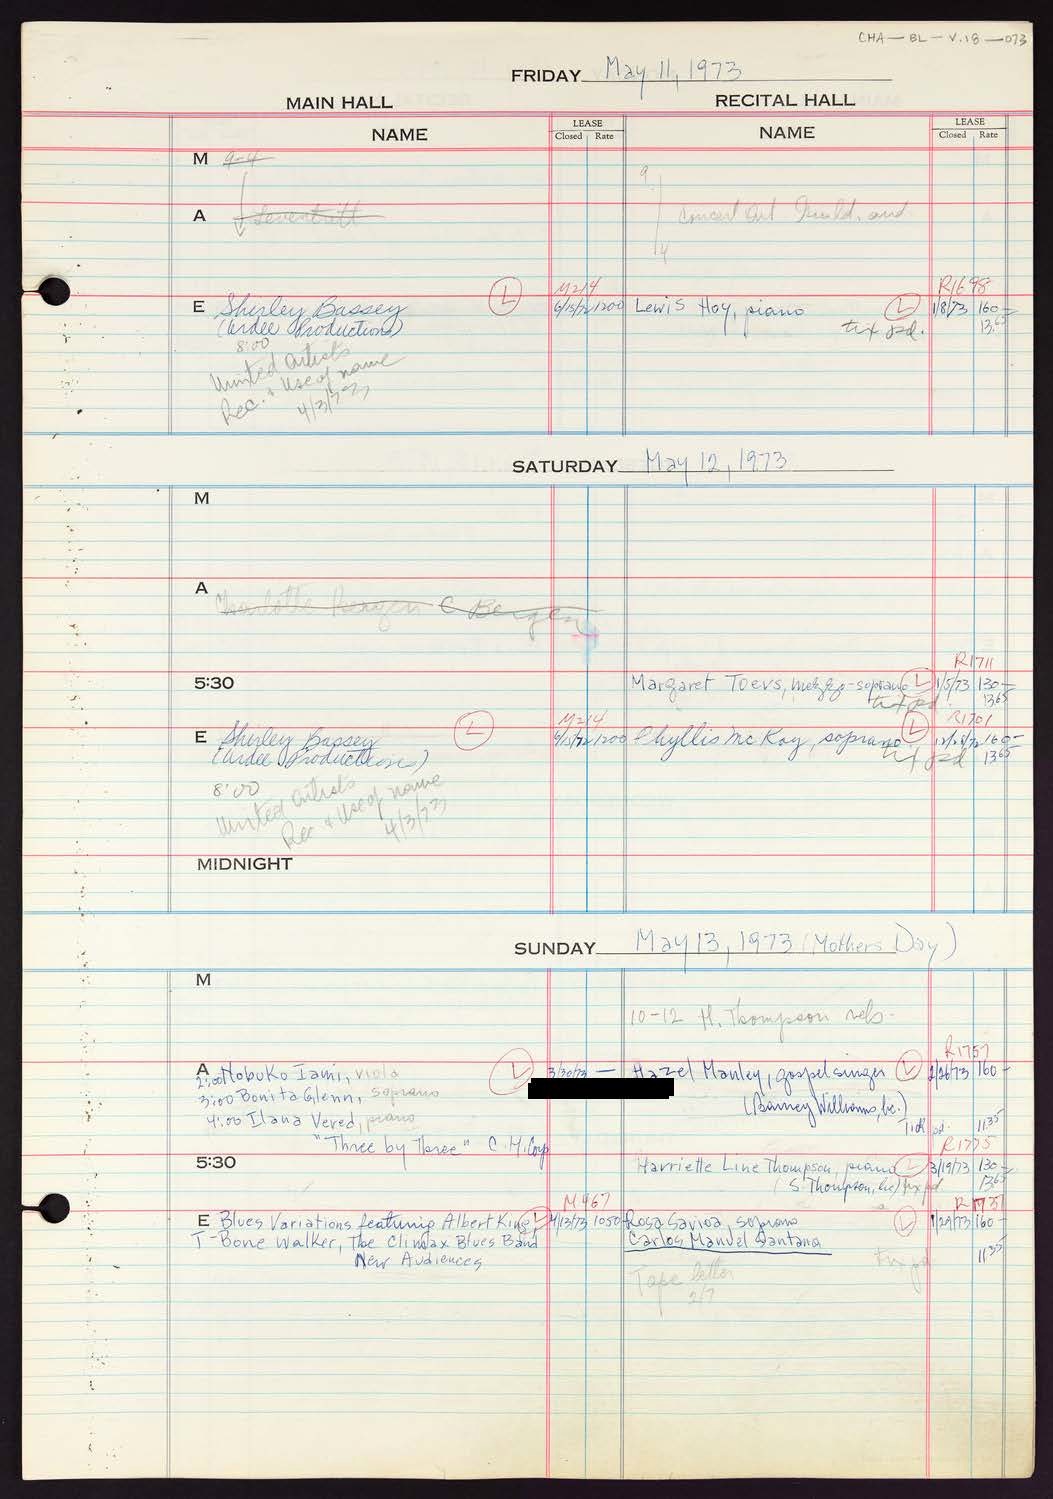 CHA-BL-V.18-073
FRIDAY May 11, 1973
MAIN HALL RECITAL HALL
NAME LEASE Closed Rate NAME LEASE Closed Rate
M 9-4
9
A Leventritt Concert Art Guild, aud
4
M214 R1698
E Shirley Bassey L 6/15/72 1200 Lewis Hoy, piano L 1/8/73 160-
(Ardee Productions) tix pd. 13.65
8:00
United Artists
Rec. & Use of name
4/3/73
SATURDAY May 12, 1973
M
A Charlotte Bergen C Bergen
R1711
5:30 Margaret Toevs, mezzo-soprano L 1/5/73 130-
tix pd. 1365
M214 R1701
E Shirley Bassey L 6/15/72 1200 Phyllis McKay, soprano L 12/28/72 160-
(Ardee Productions) tix pd 1365
8:00
United Artists
Rec & Use of name
4/3/73
MIDNIGHT
SUNDAY May 13, 1973 (Mothers Day)
M
10-12 H. Thompson rehs.
R1757
A L 3/30/73 — Hazel Manley, gospel singer L 2/26/73 160-
2:00 Nobuko Imai, viola
3:00 Bonita Glenn, soprano (Barney Williams, lic.)
4:00 Ilana Vered, piano Tick pd. 1135
"Three by Three" C.H.Corp R1775
5:30 Harriette Line Thompson, piano L 3/19/73 130-
(S. Thompson, lic) tix pd. 1365
M467 R1737
E Blues Variations featuring Albert King, L 4/13/73 1050 Rosa Savoia, soprano L 1/29/73 160-
T-Bone Walker, The Climax Blues Band Carlos Manuel Santana
New Audiences tix pd 1135
Tape letter
2/7